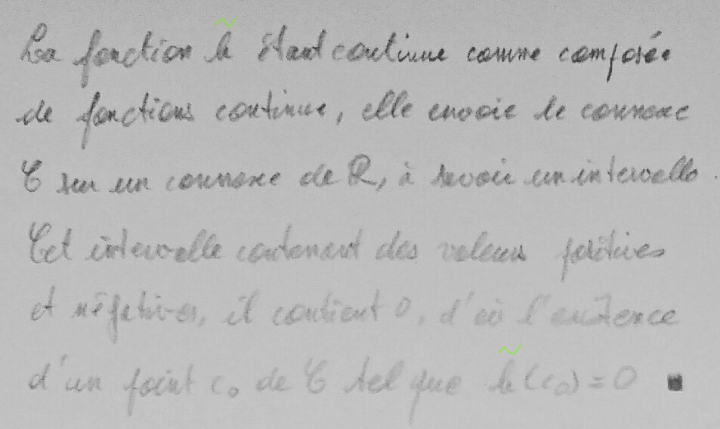 La fonction h̃ étant continue comme composée
de fonctions continue, elle envoie le connexe
𝒞 sur un connexe de ℝ, à savoir un intervalle.
Cet intervalle contenant des valeurs positives
et négatives, il contient 0, d'où l'existence
d'un point c₀ de 𝒞 tel que h̃(c₀) = 0 ■